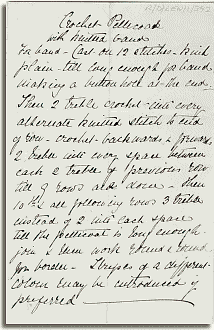 Crochet Petticoat
with knitted band
For band - Cast on 12 stitches - knit
plain - till long enough for band
making a button hole at the end.
Then 2 treble crochet into every
alternate knitted stitch to end
of row - crochet backwards & forwards
2 treble into every space between
each 2 treble of previous row
till 9 rows are done - then
10th & all following rows 3 treble
instead of 2 into each space
till the petticoat is long enough -
join & then work round & round
for border - Stripes of a different
colour may be introduced if
preferred